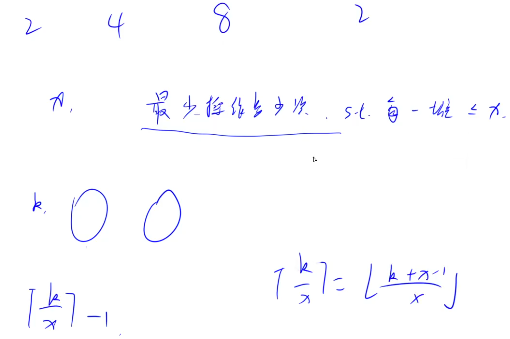 2 4 8 2
x. 最少操作多少次. s.t. 每一堆 ≤ x.
k.
⌈k/x⌉ = ⌊(k+x-1)/x⌋
⌈k/x⌉ -1.